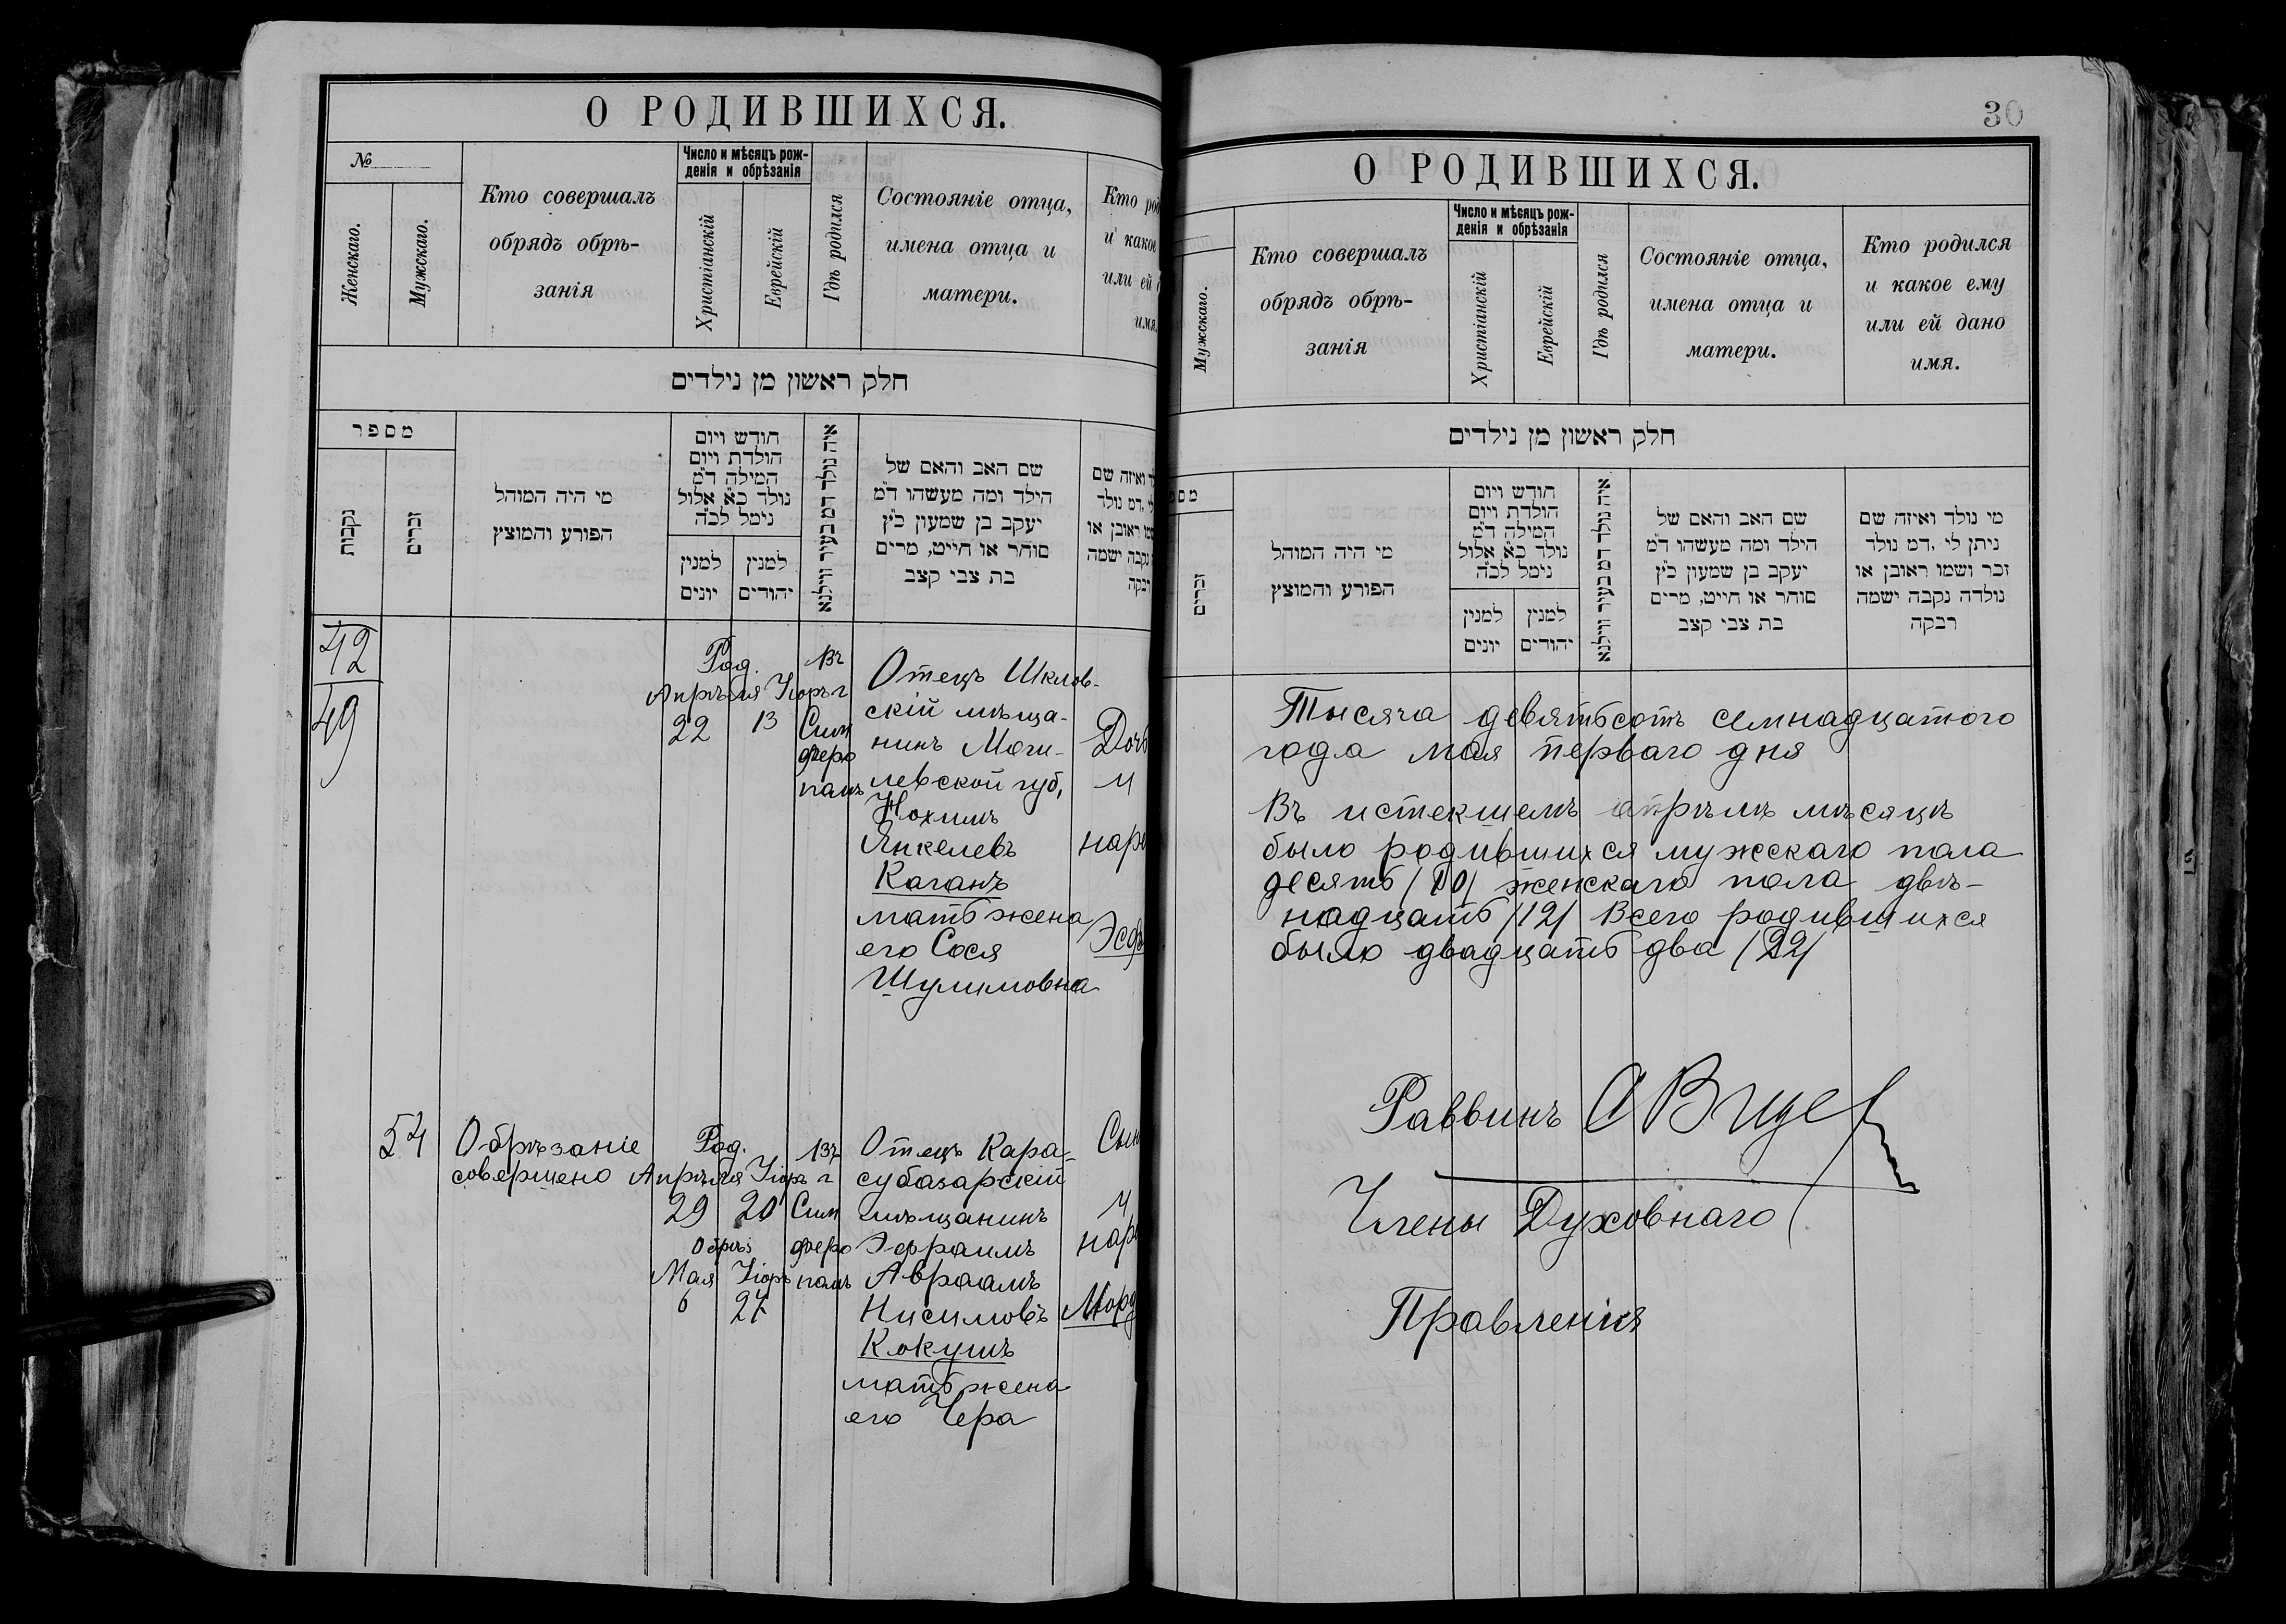 О РОДИВШИХСЯ.
№
Женскаго.
Мужскаго.
Кто совершалъ
обрядъ обрѣ-
занія
Число и мѣсяцъ рож-
денія и обрѣзанія
Христіанскій
Еврейскій
Гдѣ родился
Состояніе отца,
имена отца и
матери.
Кто род
и какое
или ей д
имя.
חלק ראשון מן נילדים
מספר
נקבות
זכרים
מי היה המוהל
הפורע והמוצץ
חודש ויום
הולדת ויום
המילה ד״מ
נולד כ״א אלול
נימל לכ״ה
למנין
יונים
למנין
יהודים
איה נולד דמ בעיר ווילנא
שם האב והאם של
הילד ומה מעשהו ד״מ
יעקב בן שמעון כ״ץ
סוחר או חייט, מרים
בת צבי קצב
ד ואיזה שם
לי ,דמ נולד
שמו ראובן או
נקבה ישמה
רבקה
42
49
Род.
Апрѣля Іюръ
22 13
Въ
г
Сим
феро
полѣ
Отецъ Шклов-
скій мѣща-
нинъ Моги-
левской губ,
Нохимъ
Янкелевъ
Каганъ
мать жена
его Сося
Шулимовна
Дочь
и
наре
Эсф
54
Обрѣзаніе
совершено
Род.
Апрѣля Іюръ
29 20
Обрѣз
Мая Іюръ
6 27
Въ
г
Сим
феро
полѣ
Отецъ Кара-
субазарскій
мѣщанинъ
Эфраимъ
Авраамъ
Нисимовъ
Кокушъ
мать жена
его Чера
Сын
и
наре
Морд
30
О РОДИВШИХСЯ.
Мужскаго.
Кто совершалъ
обрядъ обрѣ-
занія
Число и мѣсяцъ рож-
денія и обрѣзанія
Христіанскій
Еврейскій
Гдѣ родился
Состояніе отца,
имена отца и
матери.
Кто родился
и какое ему
или ей дано
имя.
חלק ראשון מן נילדים
מספ
זכרים
מי היה המוהל
הפורע והמוצץ
חודש ויום
הולדת ויום
המילה ד״מ
נולד כ״א אלול
נימל לכ״ה
למנין
יונים
למנין
יהודים
איה נולד דמ בעיר ווילנא
שם האב והאם של
הילד ומה מעשהו ד״מ
יעקב בן שמעון כ״ץ
סוחר או חייט, מרים
בת צבי קצב
מי נולד ואיזה שם
ניתן לי ,דמ נולד
זכר ושמו ראובן או
נולדה נקבה ישמה
רבקה
Тысяча девятьсотъ семнадцатого
года мая перваго дня
Въ истекшемъ апрѣлѣ мѣсяцѣ
было родившихся мужскаго пола
десять /10/ женскаго пола двѣ-
надцать /12/ Всего родившихся
было двадцать два /22/
Раввинъ
Члены Духовнаго
Правленія